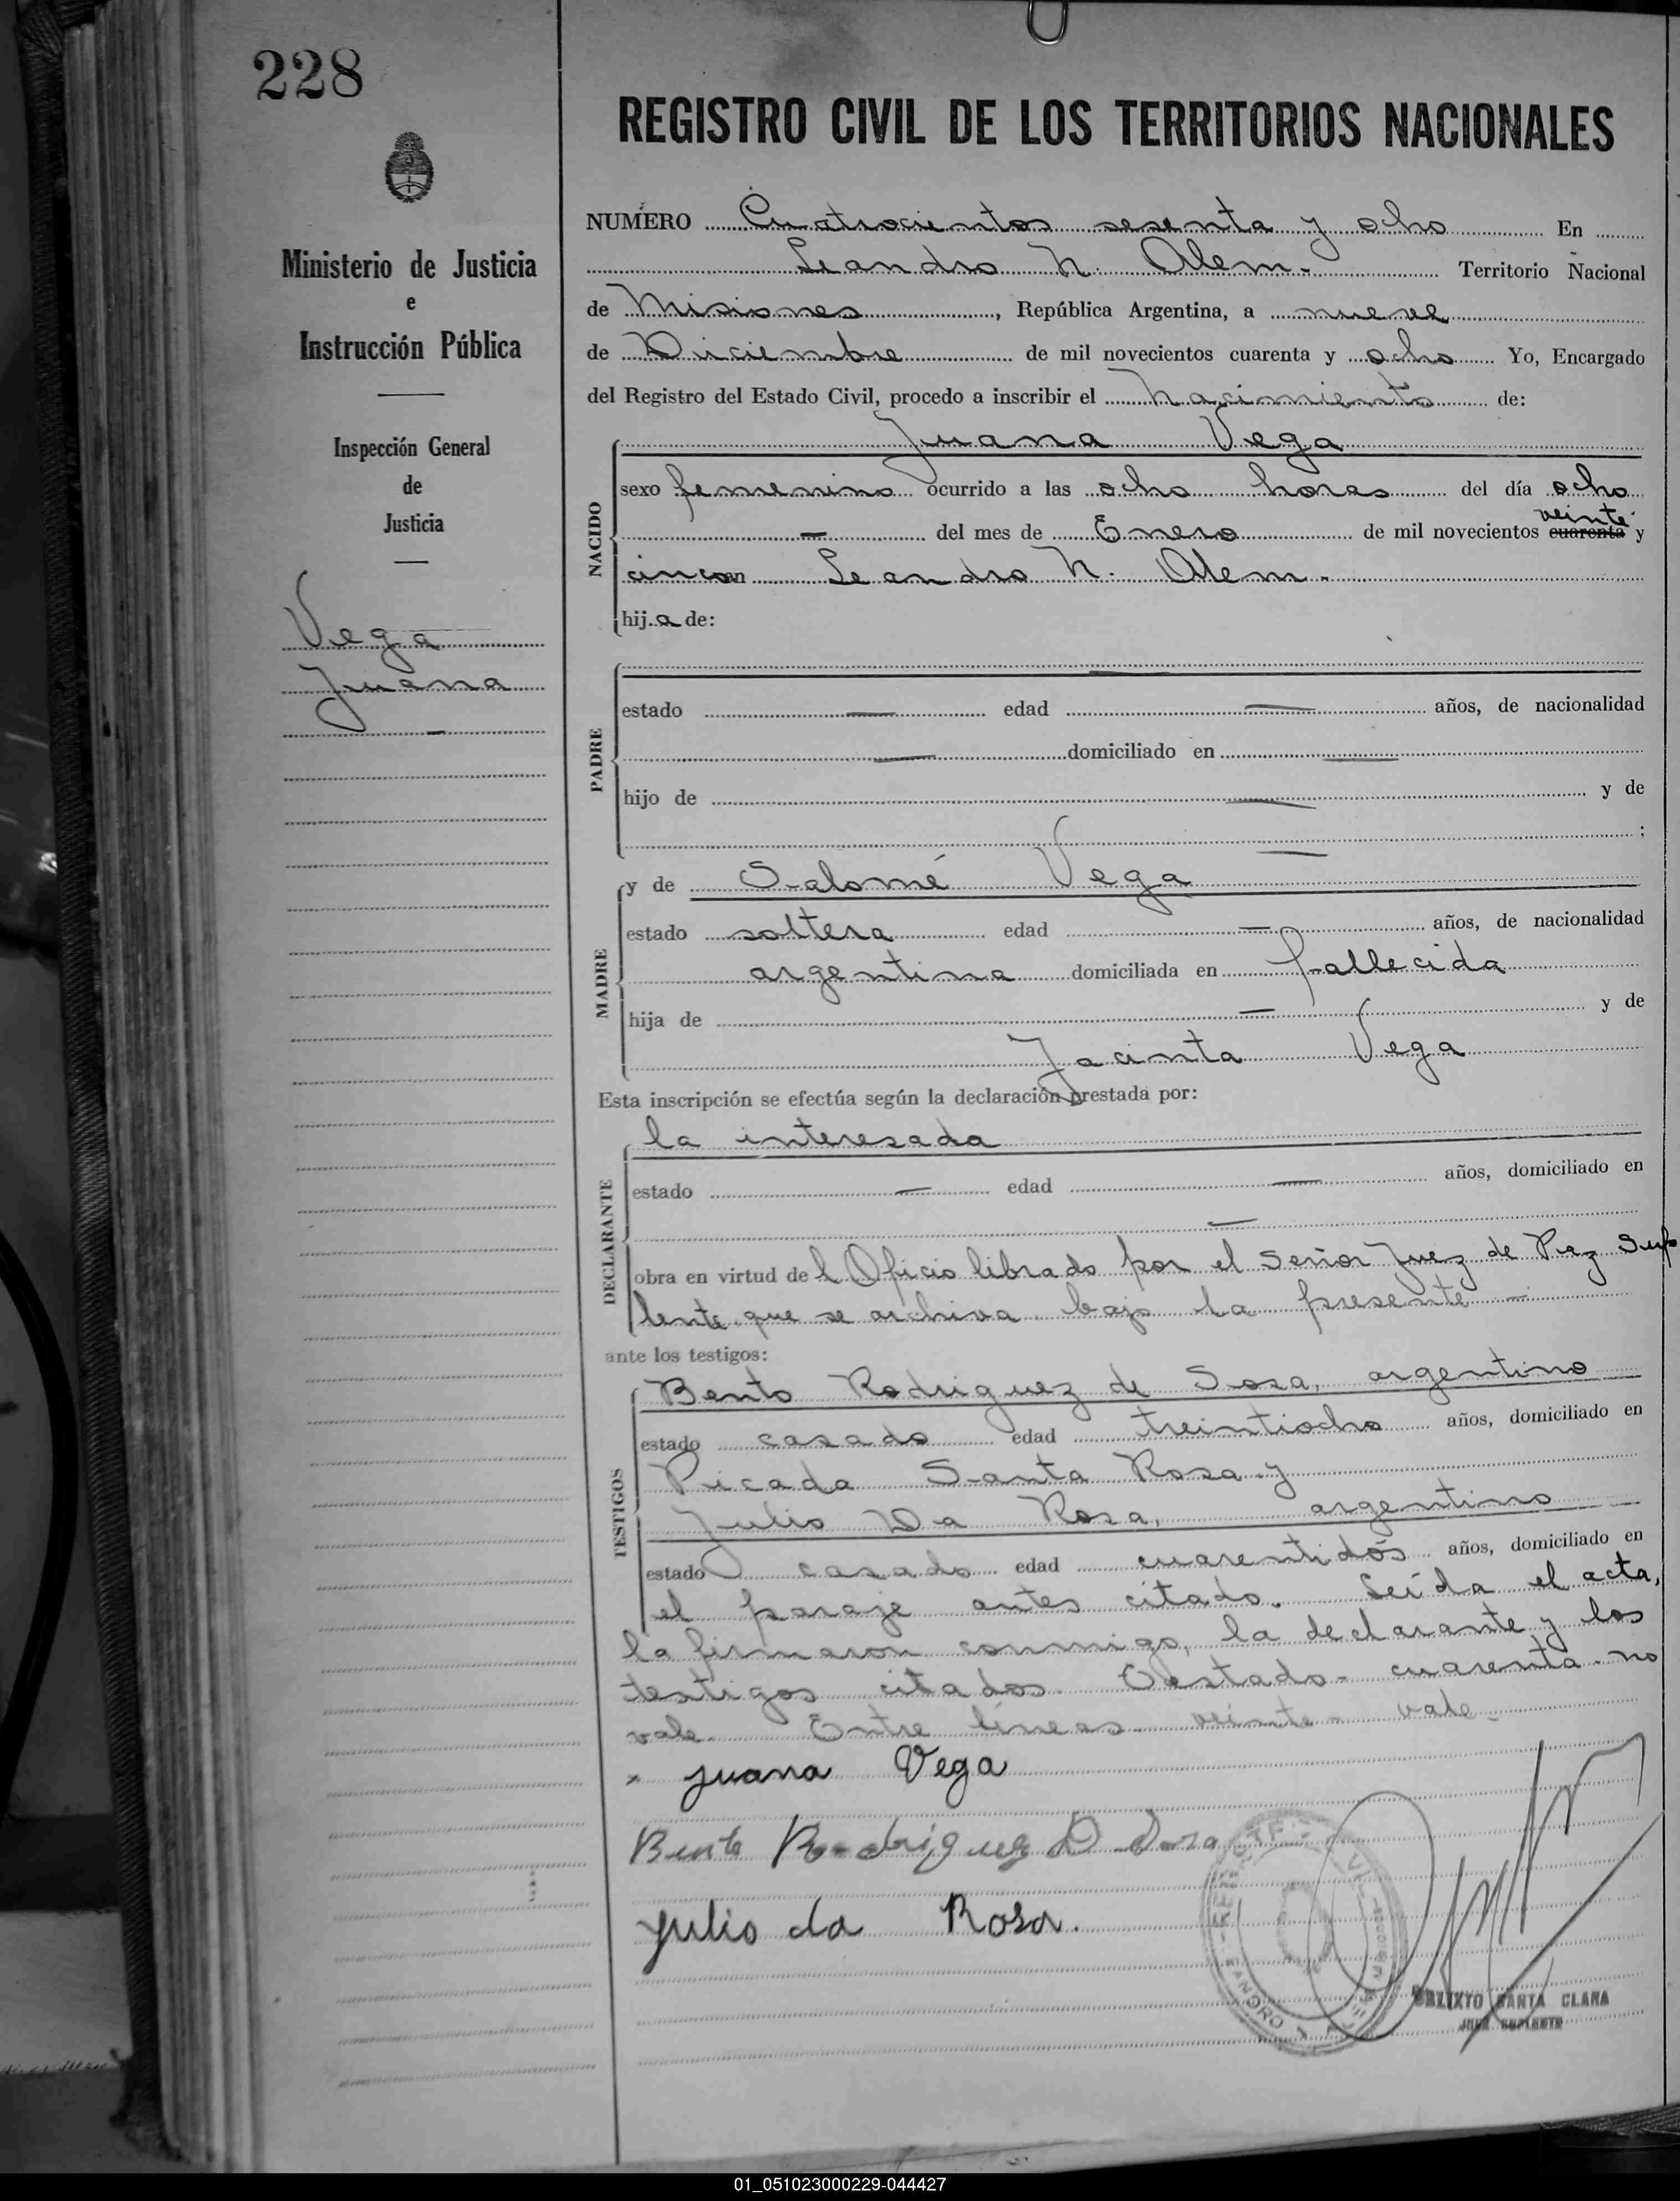 228
REGISTRO CIVIL DE LOS TERRITORIOS NACIONALES
Ministerio de Justicia
e
Instrucción Pública
Inspección General
de
Justicia
Vega
Juana
NUMERO Cuatrocientos sesenta y ocho En
Leandro N. Alem. Territorio Nacional
de Misiones, República Argentina, a nueve
de Diciembre de mil novecientos cuarenta y ocho Yo, Encargado
del Registro del Estado Civil, procedo a inscribir el Nacimiento de:
Juana Vega
NACIDO
sexo femenino ocurrido a las ocho horas del día ocho
veinte
— del mes de Enero de mil novecientos cuarenta y
cinco en Leandro N. Alem.
hija de:
PADRE
—
estado — edad — años, de nacionalidad
— domiciliado en —
hijo de — y de
— ;
MADRE
y de Salomé Vega
estado soltera edad — años, de nacionalidad
argentina domiciliada en fallecida
hija de — y de
Jacinta Vega
Esta inscripción se efectúa según la declaración prestada por:
DECLARANTE
la interesada
estado — edad — años, domiciliado en
—
obra en virtud del Oficio librado por el señor Juez de Paz Sup
lente que se archiva bajo la presente —
ante los testigos:
TESTIGOS
Bento Rodriguez de Sosa, argentino
estado casado edad treintiocho años, domiciliado en
Picada Santa Rosa y
Julio Da Rosa, argentino
estado casado edad cuarentidós años, domiciliado en
el paraje antes citado. Leída el acta,
la firmaron conmigo, la declarante y los
testigos citados. Testado - cuarenta - no
vale. Entre líneas - veinte - vale -
Juana Vega
Bento Rodriguez D
Julio da Rosa.
CALIXTO SANTA CLARA
JUEZ SUPLENTE
01_051023000229-044427